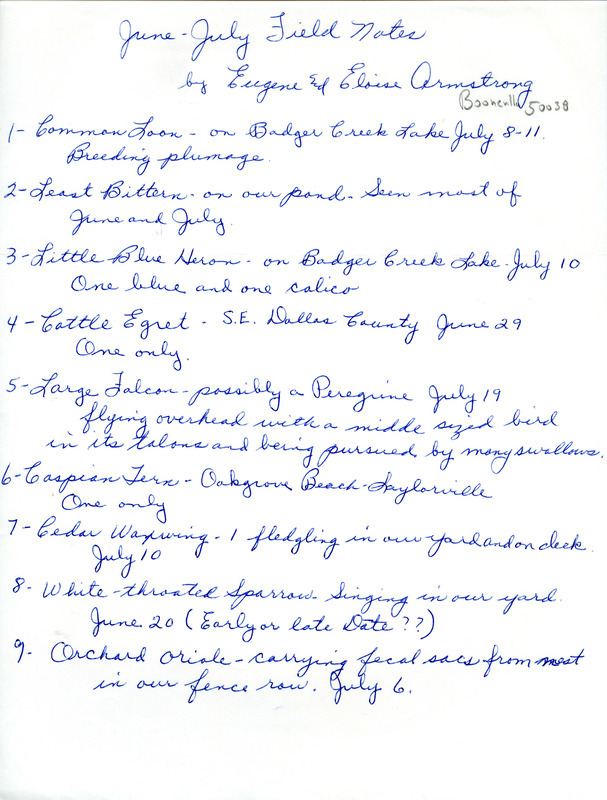 June-July Field Notes
by Eugene and Eloise Armstrong
Booneville 50038
1- Common Loon - on Badger Creek Lake July 8-11.
Breeding plumage.
2- Least Bittern - on our pond - Seen most of
June and July.
3- Little Blue Heron - on Badger Creek Lake - July 10
One blue and one calico
4- Cattle Egret - S.E. Dallas County June 29
One only.
5- Large Falcon - possibly a Peregrine July 19
flying overhead with a midde sized bird
in its talons and being pursued by many swallows.
6- Caspian Tern - Oakgrove Beach - Saylorville
One only
7- Cedar Waxwing - 1 fledgling in our yard and on deck.
July 10
8- White-throated Sparrow - Singing in our yard.
June 20 (Early or late Date ??)
9- Orchard Oriole - carrying fecal sacs from nest
in our fence row. July 6.